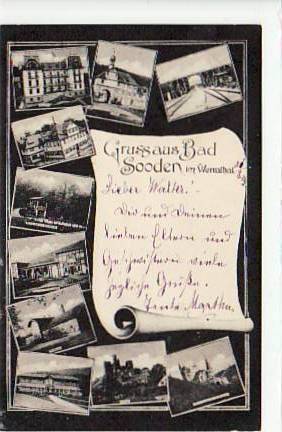 Gruss aus Bad
Sooden im Werrathal
Lieber Walter!
Dir und Deinen
lieben Eltern und
Geschwistern viele
herzliche Grüße.
Tante Martha